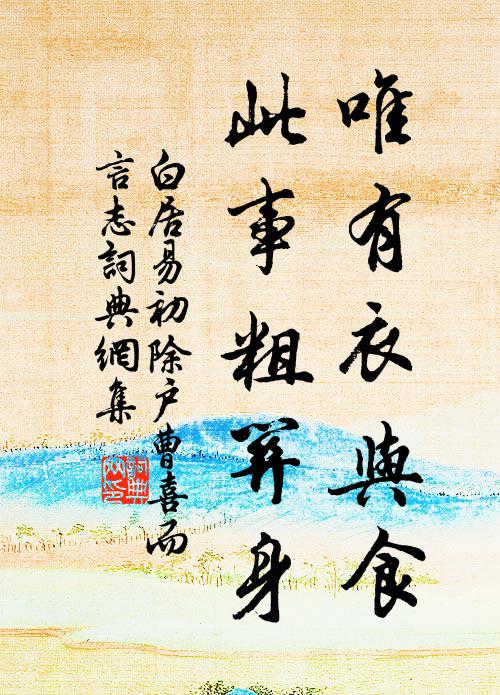 唯有衣與食
此事粗關身
白居易初除户曹喜而
言志詞典網集